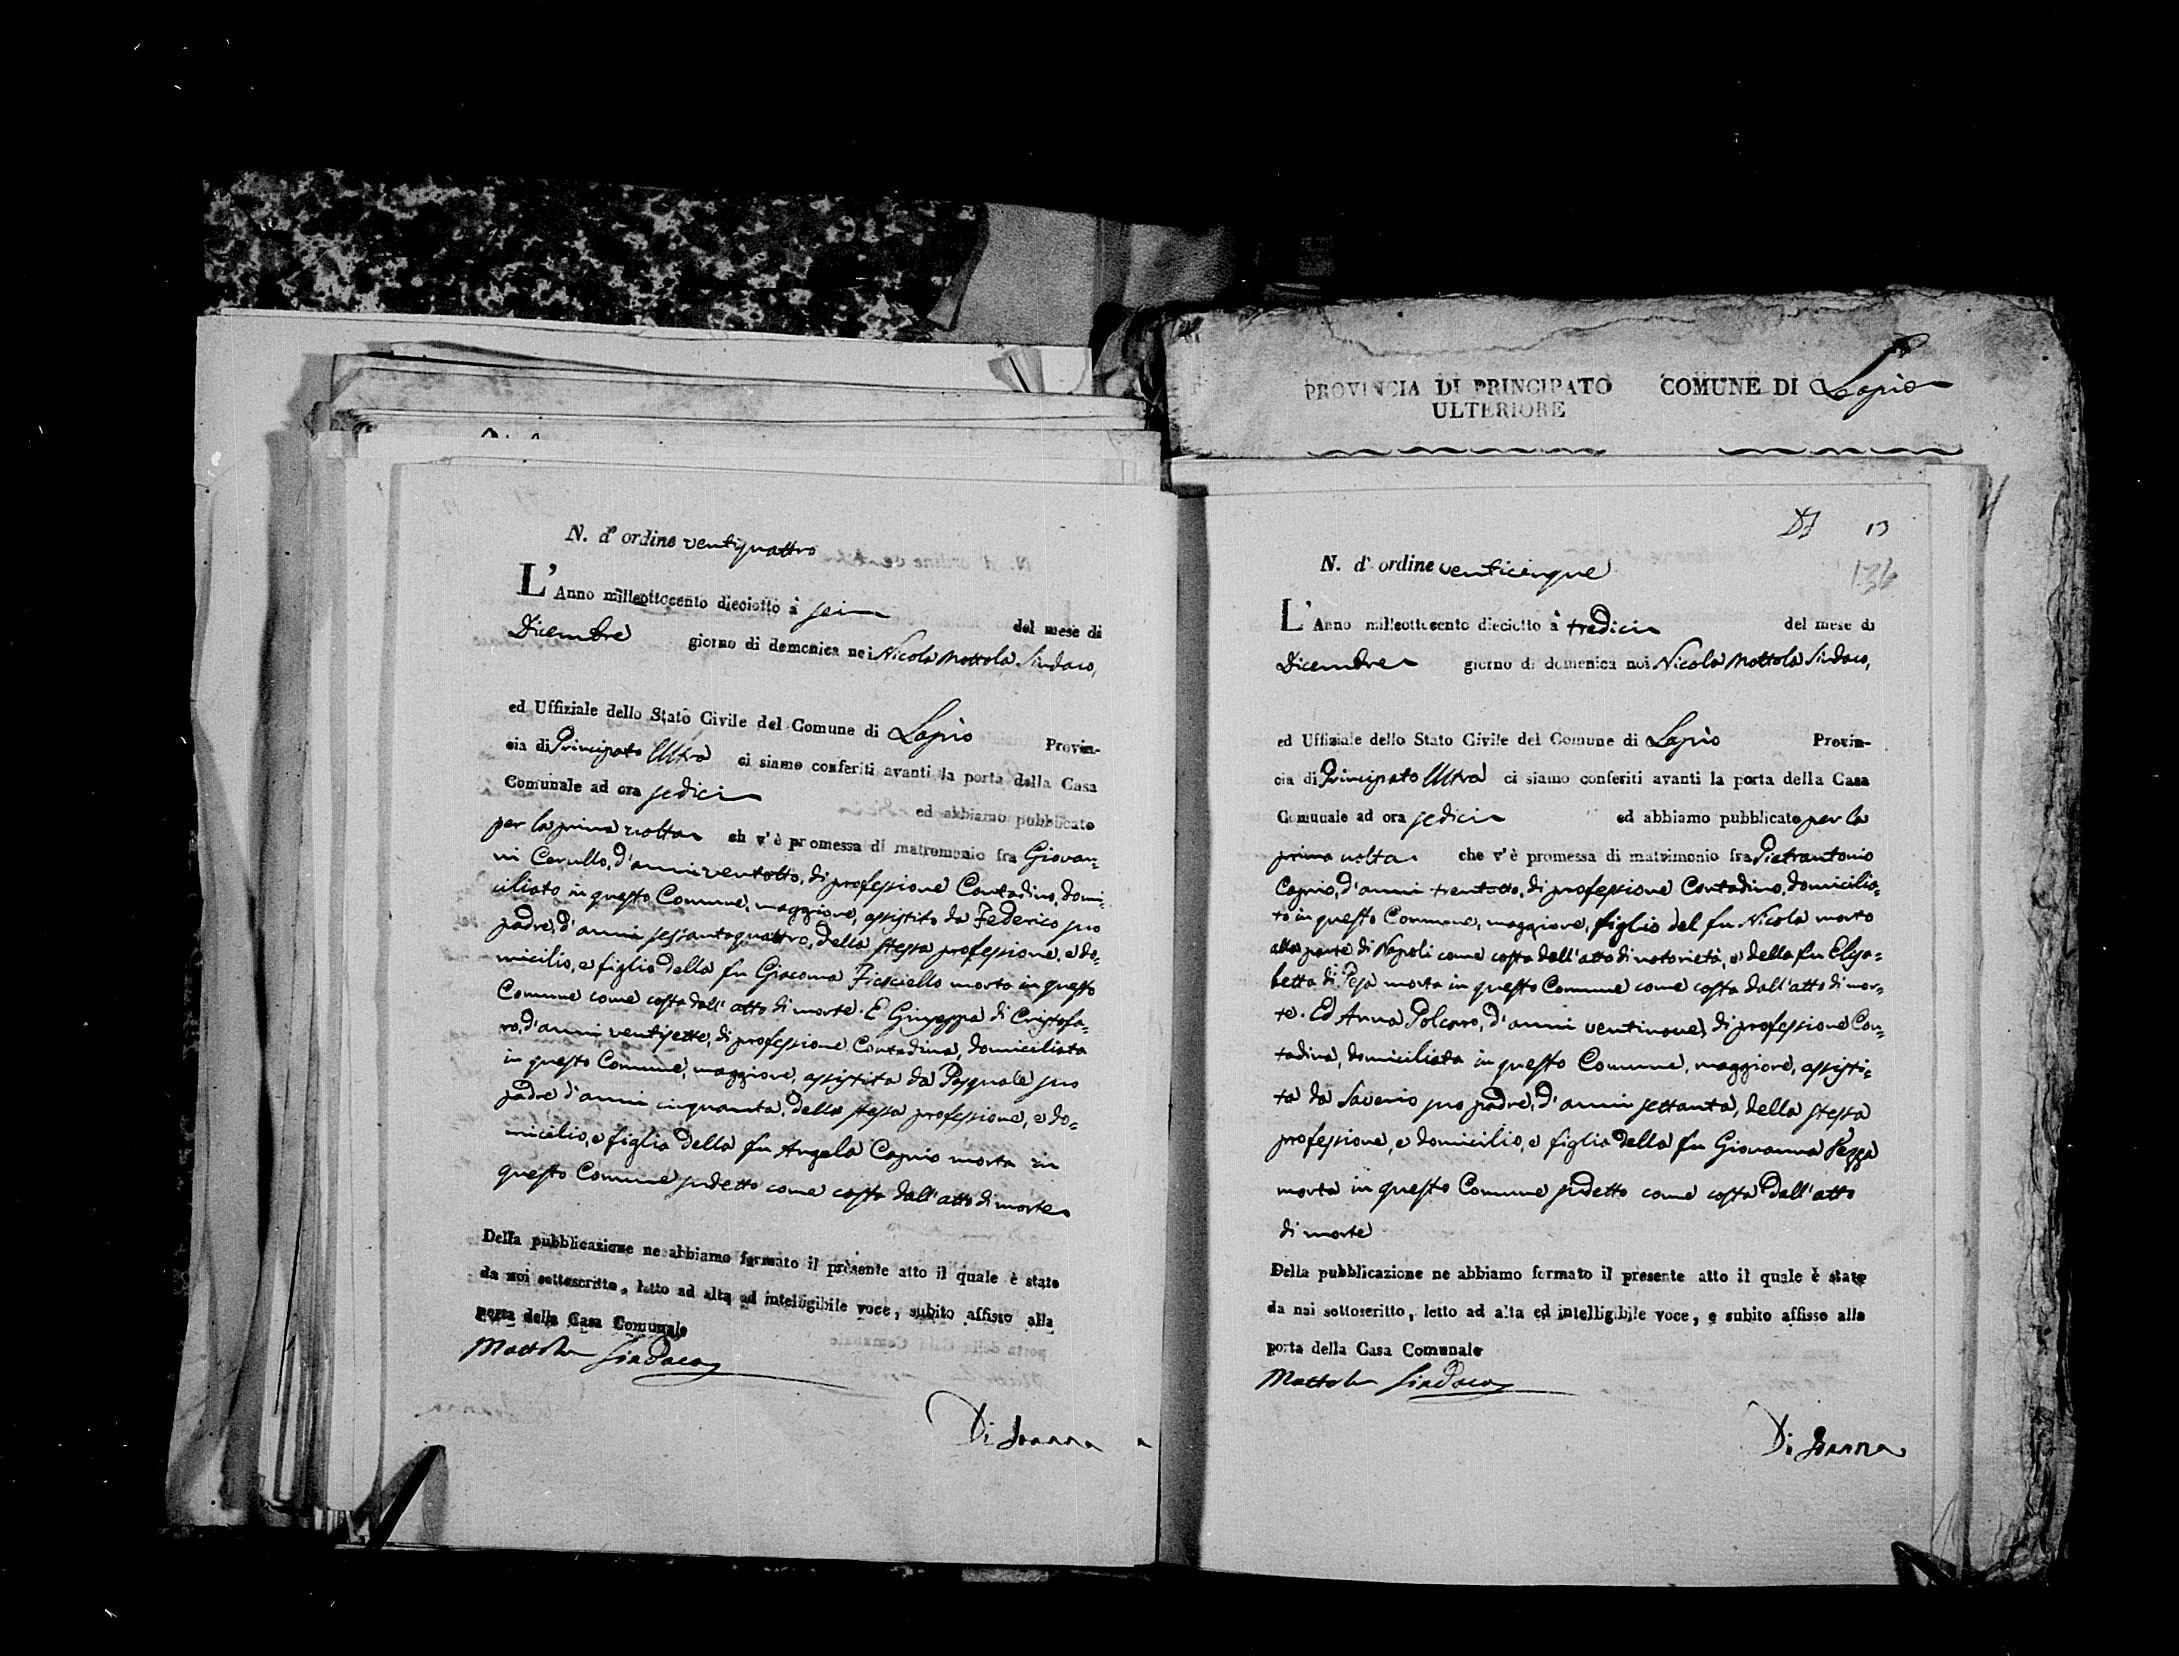 N. d'ordine ventiquattro
L'Anno milleottocento dieciotto à sei del mese di
Dicembre giorno di domenica noi Nicola Mottola Sindaco,
ed Uffiziale dello Stato Civile del Comune di Lapio Provin-
cia di Principato Ultra ci siamo conferiti avanti la porta della Casa
Comunale ad ora sedici ed abbiamo pubblicato
per la prima volta ch v'è promessa di matremonio fra Giovan-
ni Carullo, d'anni ventotto, di professione Contadino, domi-
ciliato in questo Comune, maggiore, assistito da Federico suo
padre, d'anni sessantaquattro, della stessa professione, e do-
micilio, e figlio della fu Giacoma Ficociello morta in questo
Comune come costa dall'atto di morte. E Giuseppa di Cristofa-
ro, d'anni ventisette, di professione Contadina, domiciliata
in questo Comune, maggiore, assistita da Pasquale suo
padre d'anni cinquanta, della stessa professione, e do-
micilio, e figlia della fu Angela Caprio morta in
questo Comune sudetto come costa dall'atto di morte
Della pubblicazione ne abbiamo formato il presente atto il quale è stato
da noi sottoscritto, letto ad alta ed intelligibile voce, subito affisso alla
porta della Casa Comunale
Mottola Sindaco
Di Joanna
PROVINCIA DI PRINCIPATO COMUNE DI Lapio
ULTERIORE
13
136
N. d'ordine venticinque
L'Anno milleottocento dieciotto à tredici del mese di
Dicembre giorno di domenica noi Nicola Mottola Sindaco,
ed Uffiziale dello Stato Civile del Comune di Lapio Provin-
cia di Principato Ultra ci siamo conferiti avanti la porta della Casa
Comunale ad ora sedici ed abbiamo pubblicato per la
prima volta che v'è promessa di matrimonio fra Pietrantonio
Caprio, d'anni trentotto, di professione Contadino, domicilia-
to in questo Comune, maggiore, figlio del fu Nicola morto
di Napoli come costa dall'atto di notorietà, e della fu Elisa-
betta di morta in questo Comune come costa dall'atto di mor-
te. Ed Anna Polcaro, d'anni ventinove, di professione Con-
tadina, domiciliata in questo Comune, maggiore, assisti-
ta da Saverio suo padre, d'anni settanta, della stessa
professione, e domicilio, e figlia della fu Giovanna
morta in questo Comune sudetto come costa dall'atto
di morte
Della pubblicazione ne abbiamo formato il presente atto il quale è stato
da noi sottoscritto, letto ad alta ed intelligibile voce, e subito affisso alla
porta della Casa Comunale
Mottola Sindaco
Di Joanna